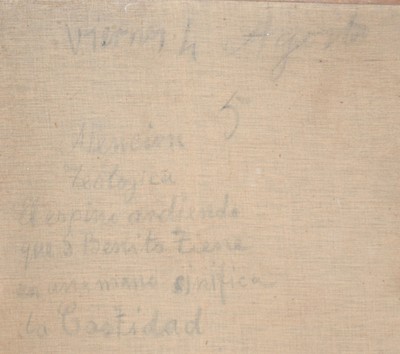 Viernes 4 Agosto
5
Atencion
Teologica
El espino ardiendo
que S Benito tiene
en una mano significa
la Castidad